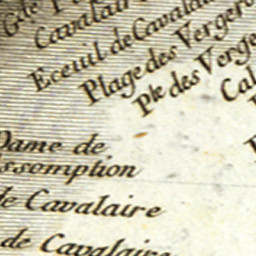 Cavalair
Eceuil de Cavalai
Plage des Verger
Pte des Verge
Cal
Dame de
ssomption
de Cavalaire
de Cavalaire